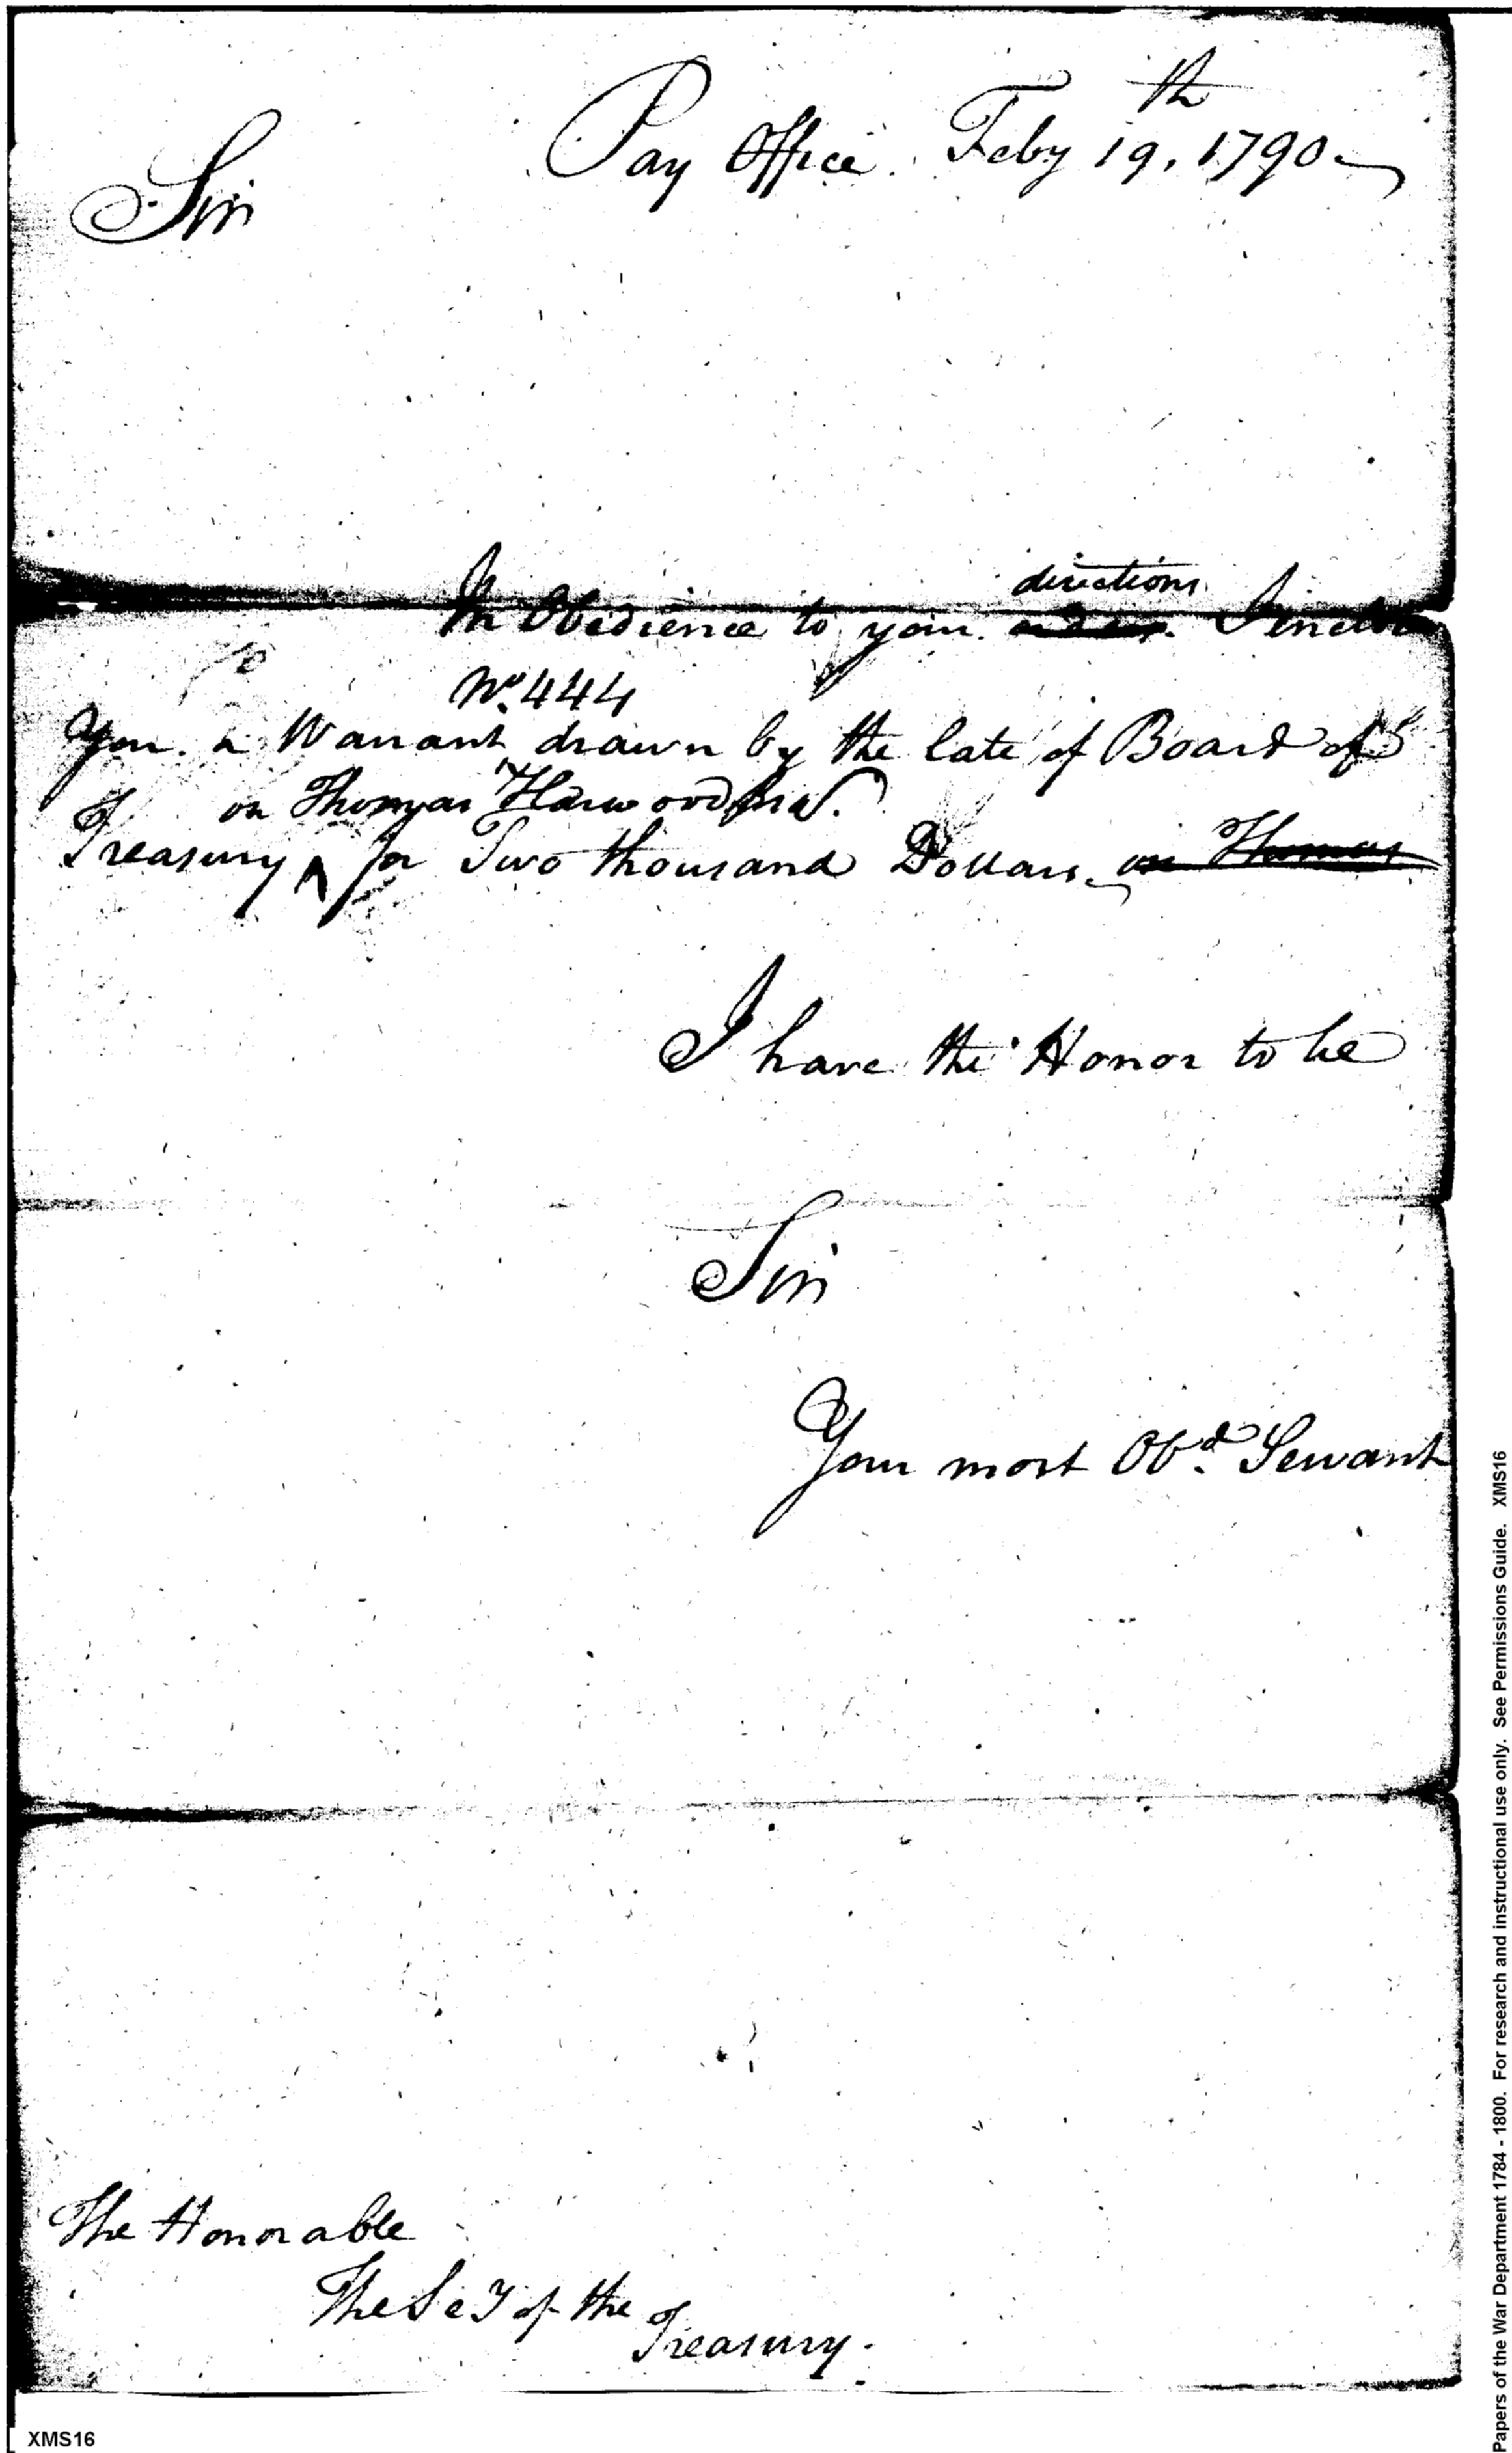 Pay Office. Feby 19th, 1790
Sir
directions
In Obedience to your orders. I inclose
No. 444
You. a Warrant drawn by the late of Board of
on Thomas Harwood
Treasury for Two thousand Dollars. on Thomas
I have the Honor to be
Sir
Your most Obd. Servant
The Honorable
The Sey of the
Treasury.
XMS16
Papers of the War Department 1784 - 1800. For research and instructional use only. See Permissions Guide. XMS16